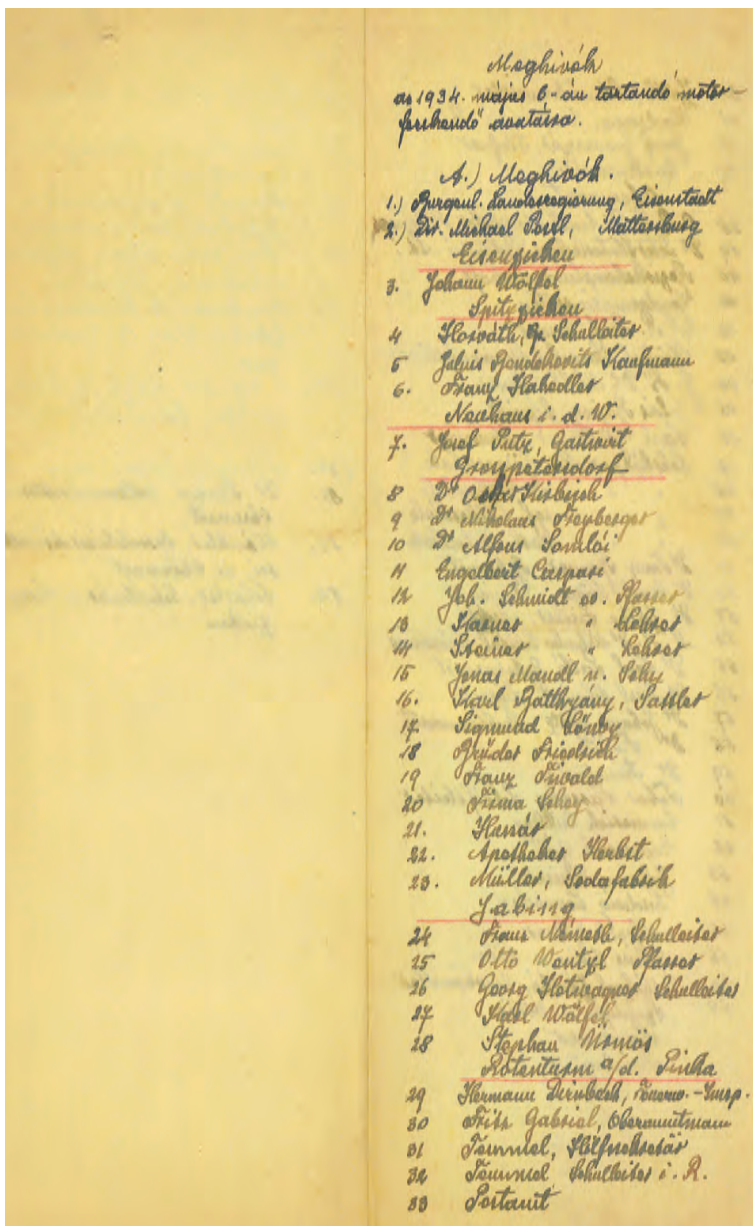 Meghivók
az 1934. május 6-án tartandó motor-
fecskendő avatásra.
A.) Meghivók.
1.) Burgenl. Landesregierung, Eisenstadt
2.) Dir. Michael Postl, Mattersburg
Eisenzicken
3. Johann Wölfel
Spitzzicken
4 Horváth, Schulleiter
5 Julius Kaufmann
6. Franz
Neuhaus i. d. W.
7. Josef Putz, Gastwirt
Grosspetersdorf
8 Dr Oskar
9 Dr Nikolaus Freyberger
10 Dr Alfons Somlói
11 Engelbert Caspari
12 Joh. Schmidt ev. Pfarrer
13 Karner " Lehrer
14 Steiner " Lehrer
15 Jonas Mandl u. Sohn
16. Karl Batthyány, Sattler
17. Sigmund Löwy
18 Brüder Friedrich
19 Franz
20 Firma Schey
21. Husár
22. Apotheker Herbst
23. Müller, Sodafabrik
Jabing
24 Franz Németh, Schulleiter
25 Otto Wentzl Pfarrer
26 Georg Hotwagner Schulleiter
27 Karl Wölfel
28 Stephan
Rotenturm a/d. Pinka
29 Hermann Dirnbeck, Feuerw.-Insp.
30 Fritz Gabriel, Oberamtmann
31 Temmel,
32 Temmel Schulleiter i. R.
33 Postamt